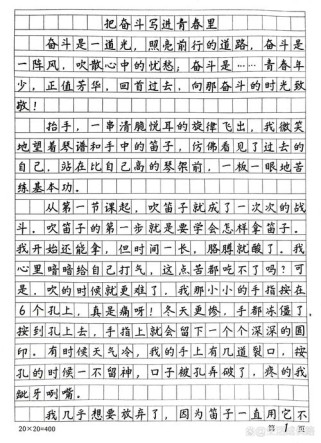 把奋斗写进青春里
奋斗是一道光，照亮前行的道路，奋斗是
一阵风，吹散心中的忧愁；奋斗是……青春年
少，正值芳华，回首过去，向那奋斗的时光致
敬！
抬手，一串清脆悦耳的旋律飞出，我微笑
地望着琴谱和手中的笛子，仿佛看见了过去的
自己，站在比自己高的琴架前，一板一眼地苦
练基本功。
从第一节课起，吹笛子就成了一次次的战
斗。吹笛子的第一步就是要学会怎样拿笛子。
我开始还能拿，但时间一长，胳膊就酸了。我
心里暗暗给自己打气，这点苦都吃不了吗？可
是，吹的时候就更难了。我那小小的手指按在
6个孔上，真是痛呀！冬天更惨，手都冻僵了，
按到孔上去，手指上就会留下一个个深深的圆
印。有时候天气冷，我的手上有几道裂口，按
孔的时候一不留神，口子被孔弄破了，疼的我
龇牙咧嘴。
我几乎想要放弃了，因为笛子一直用它不
20×20=400
第 1 页